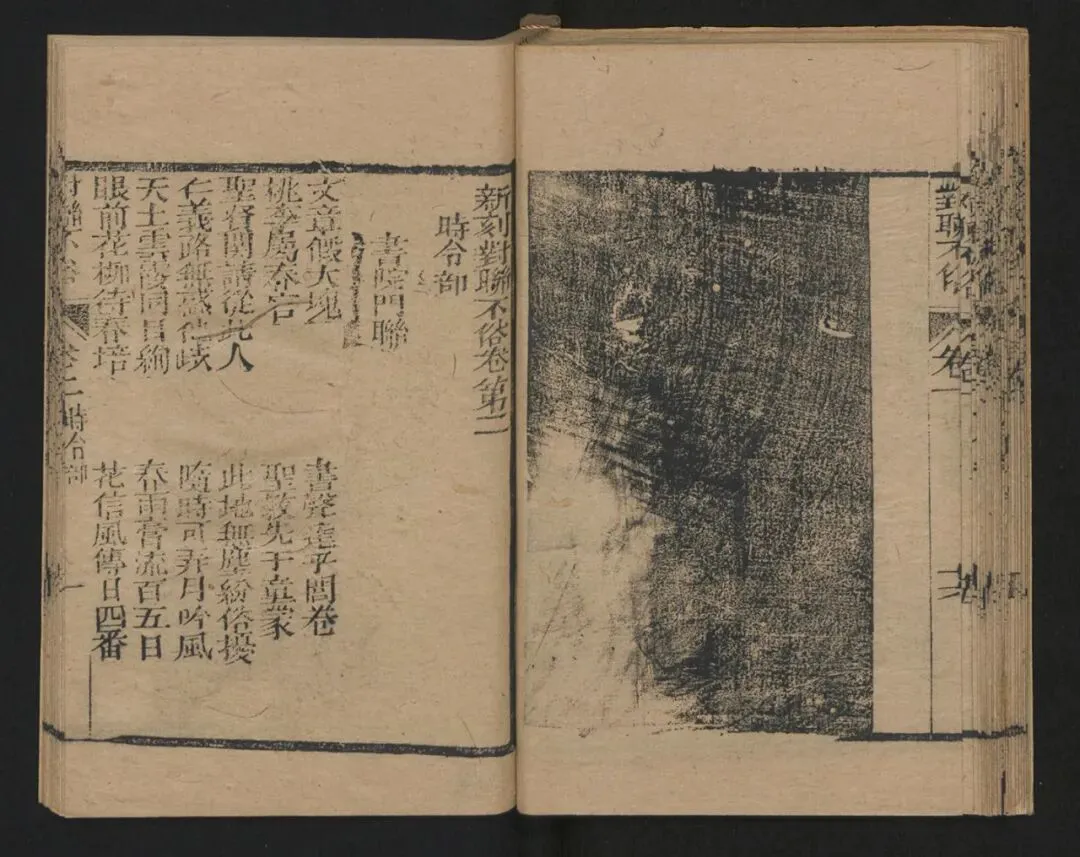 對聯不俗
卷一
新刻對聯不俗卷第二
時令部
書院門聯
文章假大塊
書聲達乎閭巷
桃李屬春官
聖教先于童蒙
聖賢関請從此人
此地無塵紛俗擾
仁義路無惑他岐
隨時可弄月吟風
天上雲霞同目絢
春雨膏流百五日
眼前花柳待春培
花信風傳日四番
卷二
時令部
一